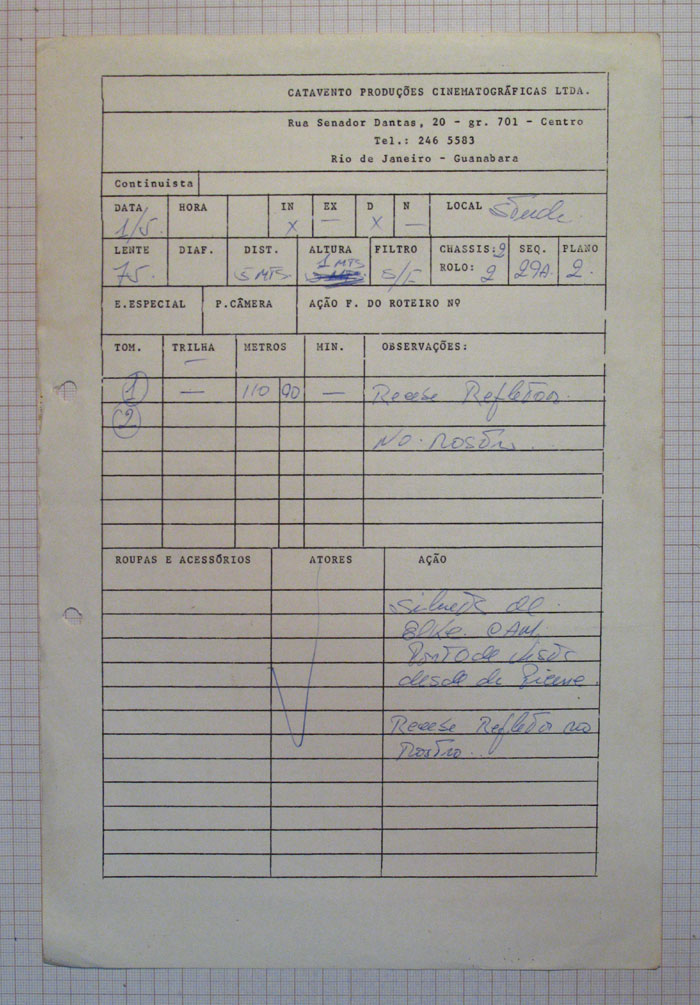 CATAVENTO PRODUÇÕES CINEMATOGRÁFICAS LTDA.
Rua Senador Dantas, 20 - gr. 701 - Centro
Tel.: 246 5583
Rio de Janeiro - Guanabara
Continuista
DATA HORA IN EX D N LOCAL
1/5. X — X —
LENTE DIAF. DIST. ALTURA FILTRO CHASSIS: 2 SEQ. PLANO
75. 5 MTS 1 MTS S/F ROLO: 2 29A. 2.
E.ESPECIAL P.CÂMERA AÇÃO F. DO ROTEIRO Nº
TOM. TRILHA METROS MIN. OBSERVAÇÕES:
—
1 — 110 90 — Recebe Refletor
2
no rosto
ROUPAS E ACESSÓRIOS ATORES AÇÃO
de
CAM.
Ponto de vista
desde de
Recebe Refletor no
rosto